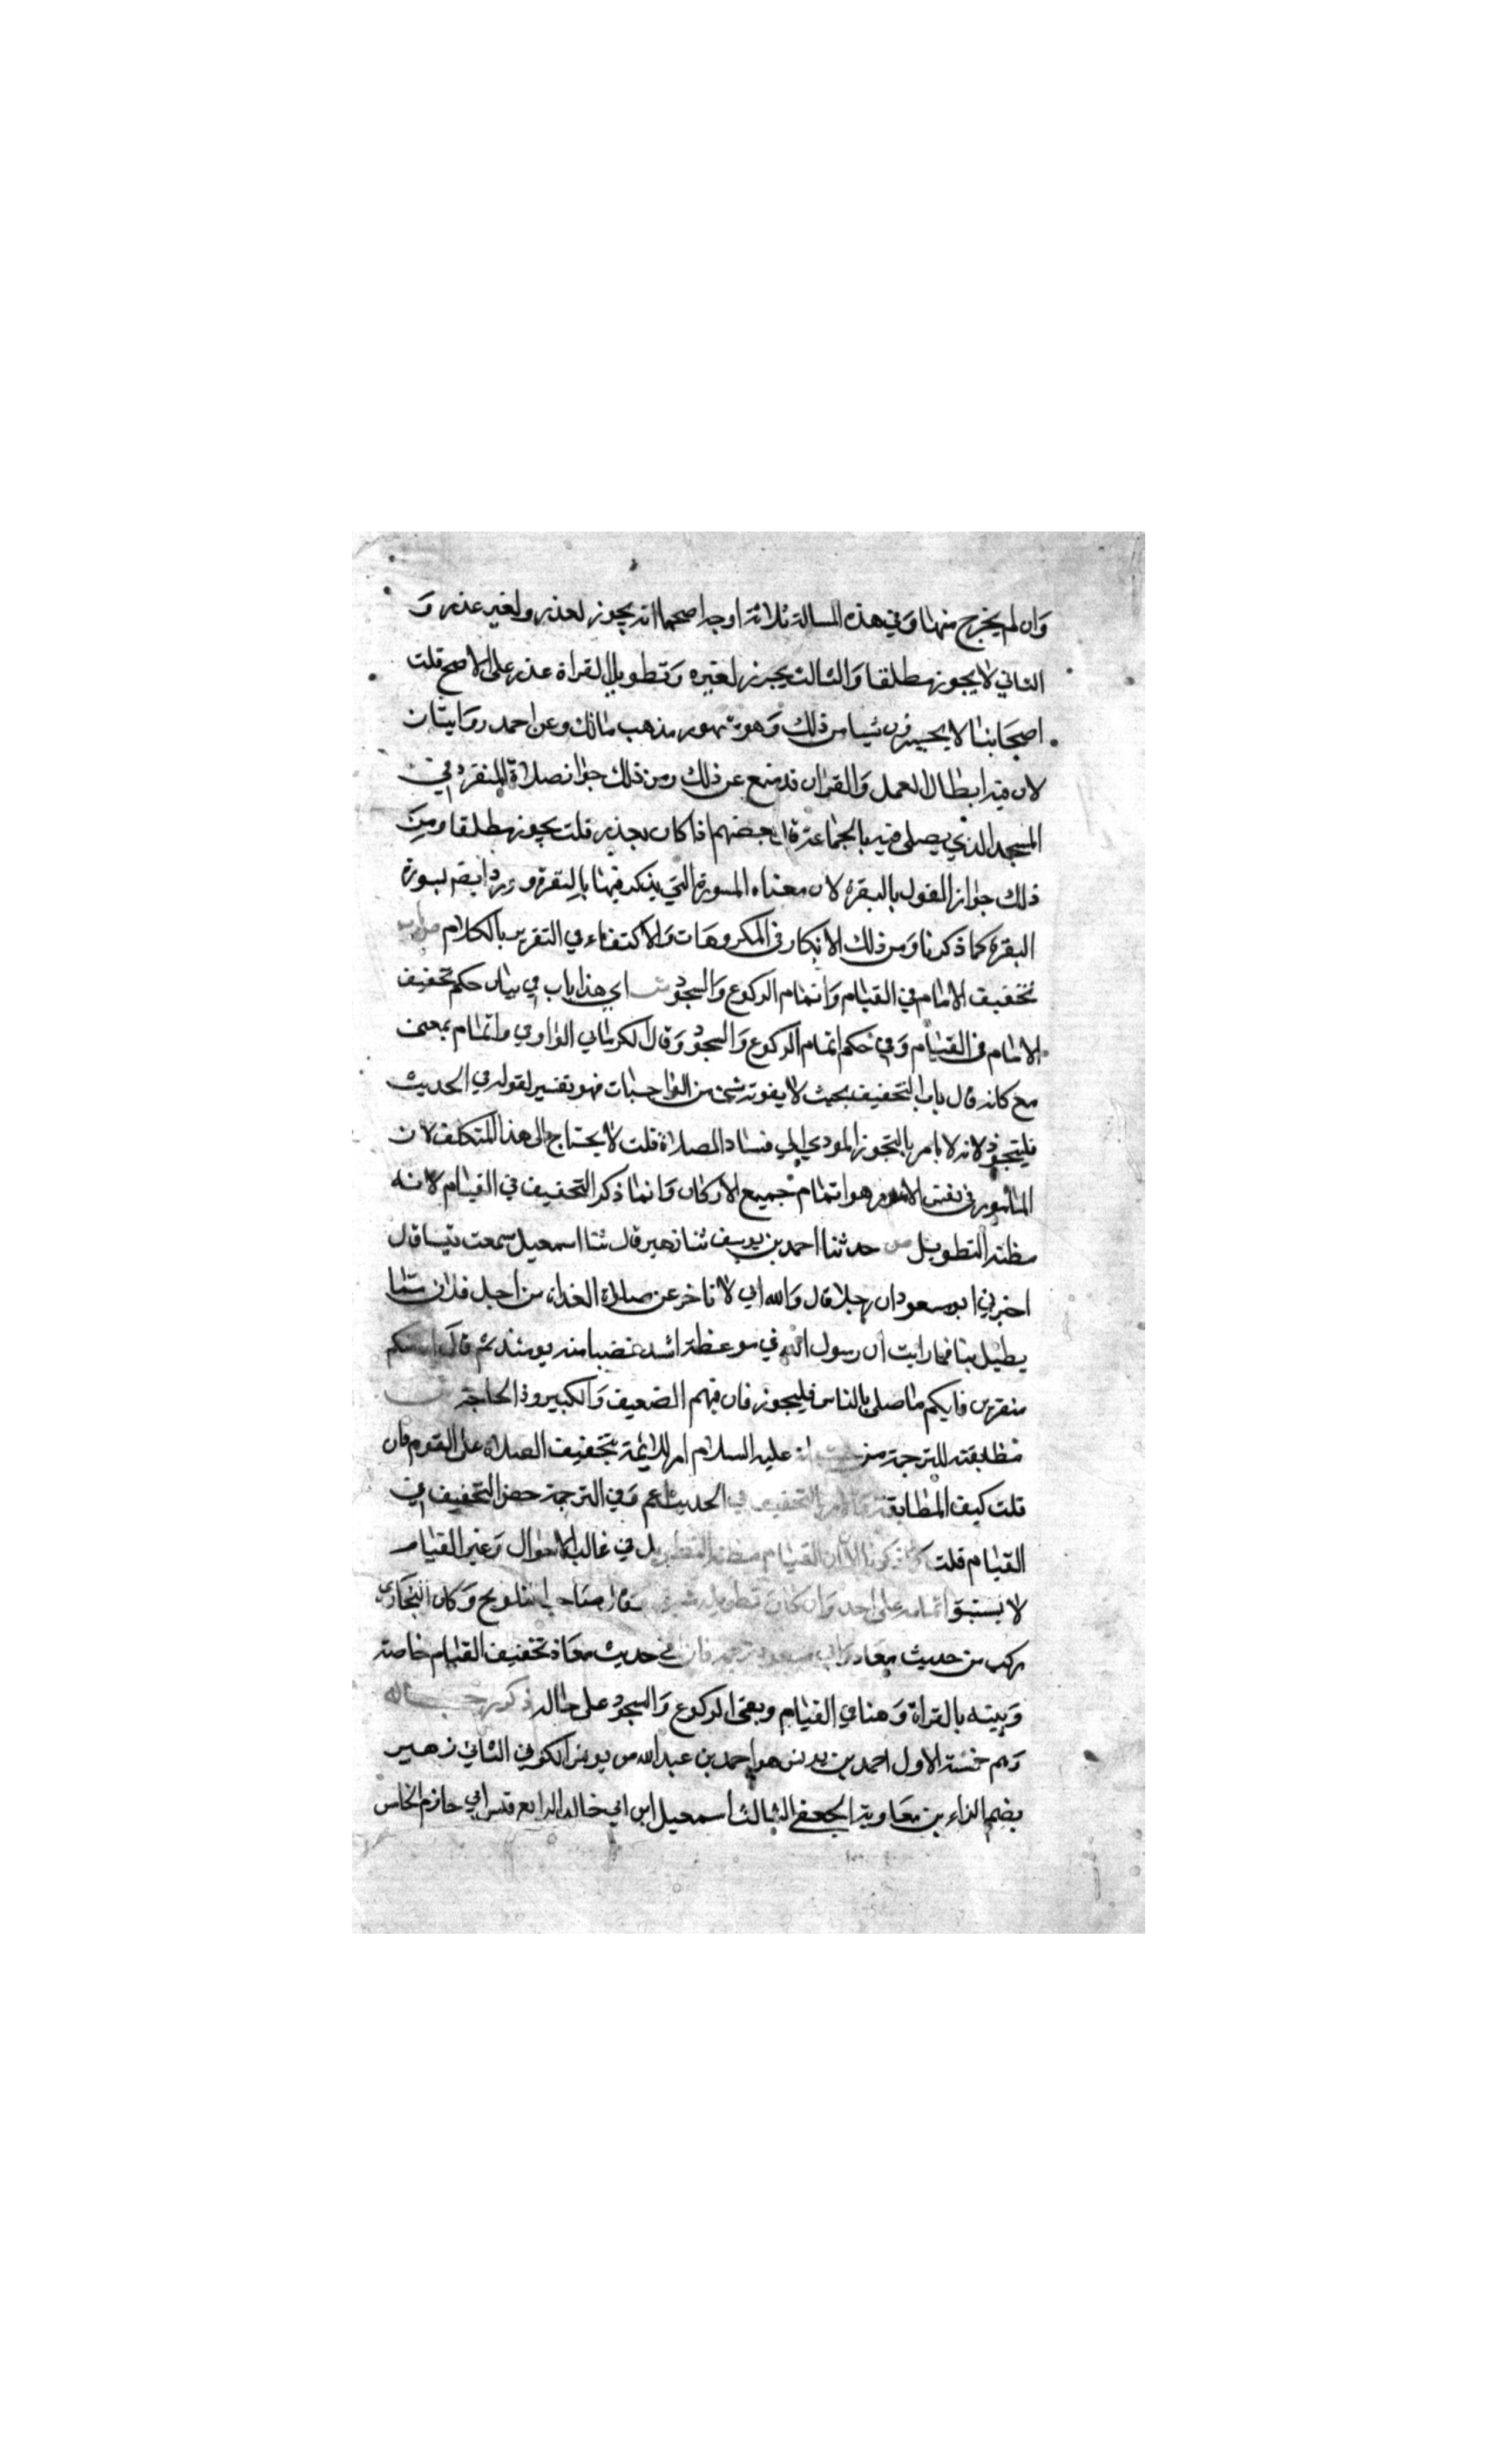 وان لم يخرج منها وفي هذه المسالة ثلاثة اوجه اصحها انه يجوز لعذر ولغير عذر و
الثاني لا يجوز مطلقا والثالث يجوز لعذر ولا يجوز لغيره وتطويل القراة عذر على الاصح قلت
اصحابنا لا يجيزون شيا من ذلك وهو مشهور مذهب مالك وعن احمد روايتان
لان فيه ابطال العمل والقران قد منع عن ذلك ومن ذلك جواز صلاة المنفرد في
المسجد الذي يصلى فيه بالجماعة قال بعضهم اذا كان بعذر قلت يجوز مطلقا ومن
ذلك جواز القول بالبقرة لان معناه السورة التي يذكر فيها البقرة وورد ايضا بسورة
البقرة كما ذكرنا ومن ذلك الانكار في المكروهات والاكتفاء في التعزير بالكلام ص باب
تخفيف الامام في القيام واتمام الركوع والسجود ش اي هذا باب في بيان حكم تخفيف
الامام في القيام وفي حكم اتمام الركوع والسجود وقال الكرماني الواو في واتمام بمعنى
مع كانه قال باب التخفيف بحيث لا يفوته شئ من الواجبات فهو تفسير لقوله في الحديث
فليتجوز لانه لا يامر بالتجوز المودي الي فساد الصلاة قلت لا يحتاج الى هذا التكلف لان
المامور في نفس الامر هو اتمام جميع الاركان وانما ذكر التخفيف في القيام لانه
مظنة التطويل ص حدثنا احمد بن يونس ثنا زهير قال ثنا اسمعيل سمعت قيسا قال
اخبرني ابو مسعود ان رجلا قال والله اني لاتاخر عن صلاة الغداة من اجل فلان مما
يطيل بنا فما رايت ان رسول الله في موعظة اشد غضبا منه يومئذ ثم قال ان منكم
منفرين فايكم ما صلى بالناس فليجوز فان فيهم الضعيف والكبير وذا الحاجة ش
مطابقته للترجمة من حيث انه عليه السلام امر الايمة بتخفيف الصلاة على القوم فان
قلت كيف المطابقة والامر بالتخفيف في الحديث اعم وفي الترجمة خص التخفيف في
القيام قلت لما ذكرنا الان القيام مظنة التطويل في غالب الاحوال وغير القيام
لا يشق اتمامه على احد وان كان تطويله شق وقال صاحب التلويح وكان البخاري
ركب من حديث معاذ وابي مسعود ترجمة فان في حديث معاذ تخفيف القيام خاصة
وبينه بالقراة وهنا في القيام وبقى الركوع والسجود على حاله ذكر رجاله
وهم خمسة الاول احمد بن يونس هو احمد بن عبد الله بن يونس الكوفي الثاني زهير
بضم الزاء بن معاوية الجعفي الثالث اسمعيل ابن ابي خالد الرابع قيس ابي حازم الخامس